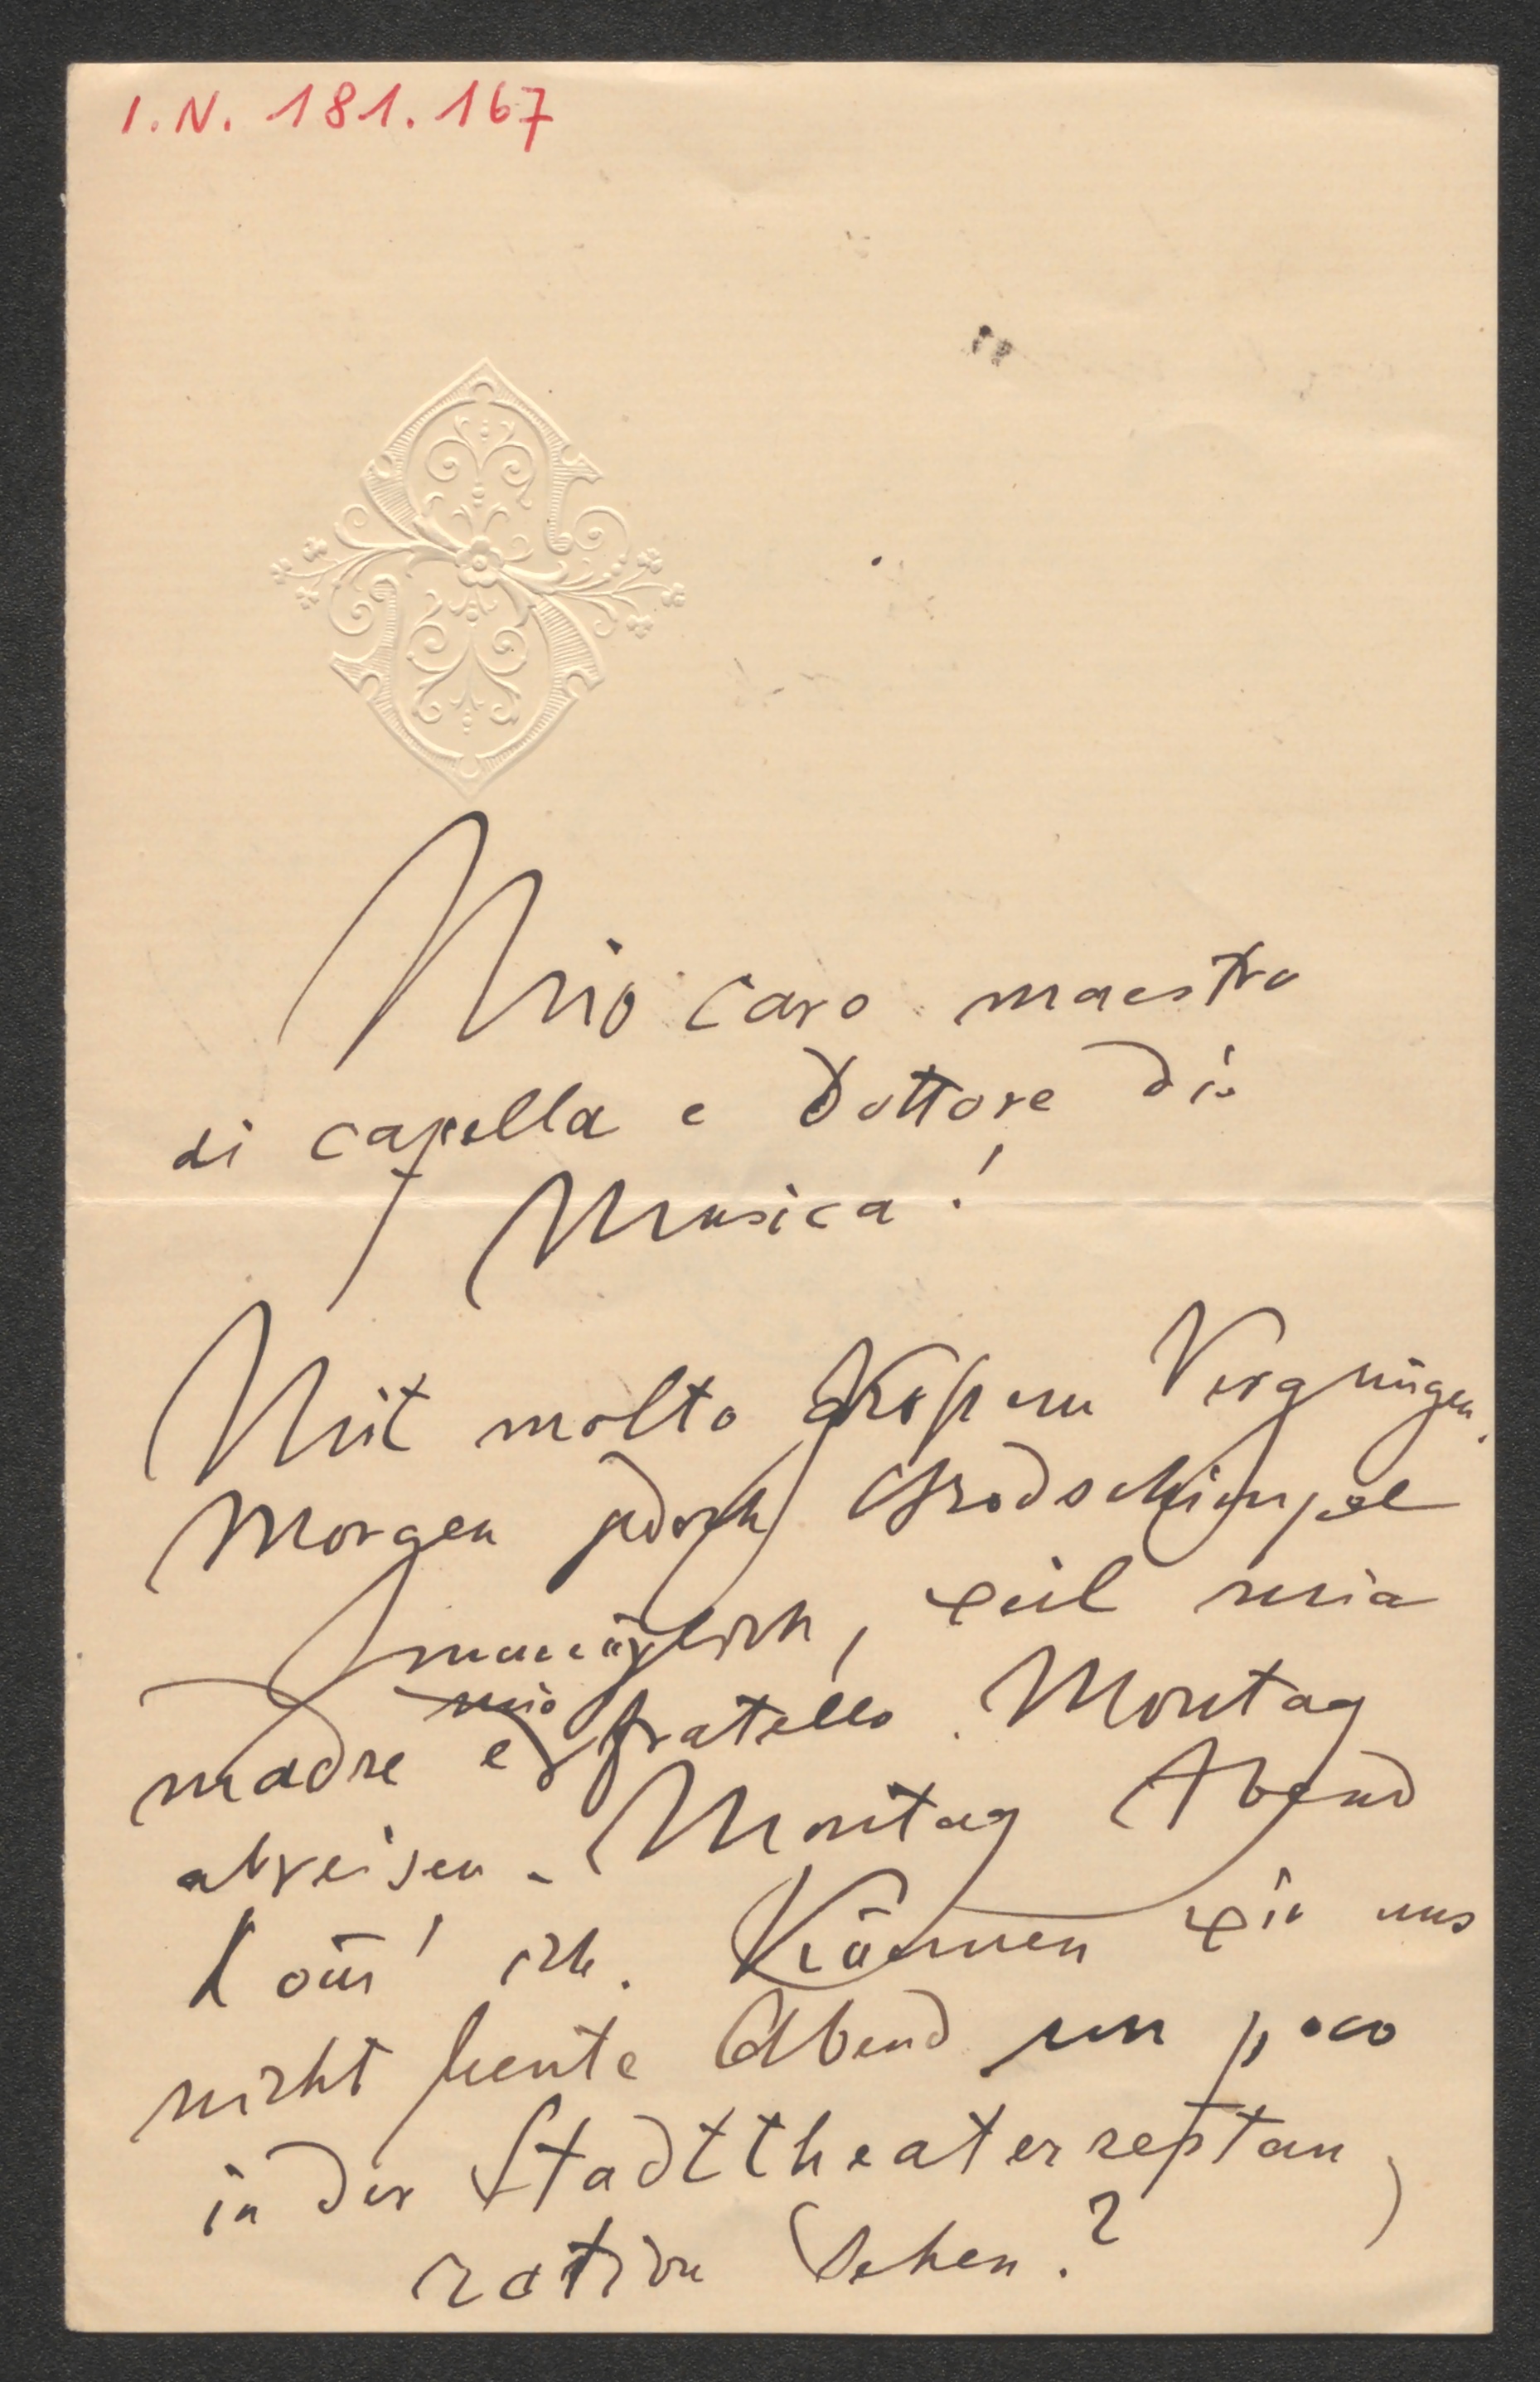 I.N. 181.167
Mio caro maestro
di capella e Dottore di
Musica!
Mit molto großem Vergnügen.
Morgen jedoch
unmöglich, weil mia
madre ed mio fratello Montag
abreisen. Montag Abend
könn' ich. Können wir uns
nicht heute Abend un poco
in der Stadttheaterrestau
ration sehen?